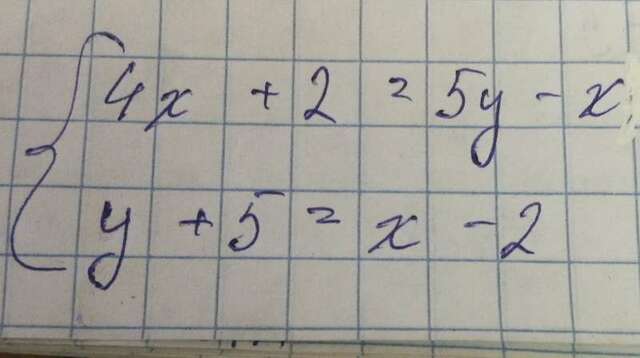 4x + 2 = 5y - x
y + 5 = x - 2